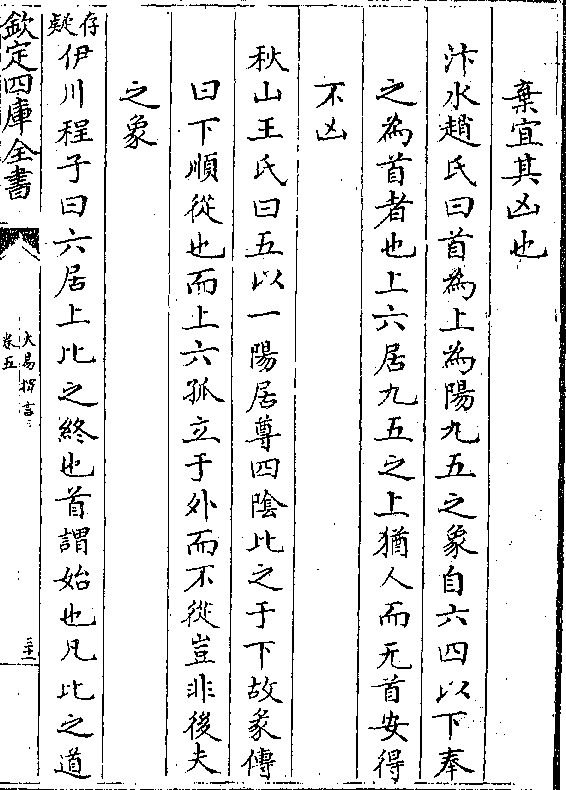 棄宜其凶也
汴水趙氏曰首為上為陽九五之象自六四以下奉
之為首者也上六居九五之上猶人而无首安得
不凶
秋山王氏曰五以一陽居尊四陰比之于下故彖傳
曰下順從也而上六孤立于外而不從豈非後夫
之象
存疑伊川程子曰六居上比之終也首謂始也凡比之道
欽定四庫全書
大易擇言
卷五